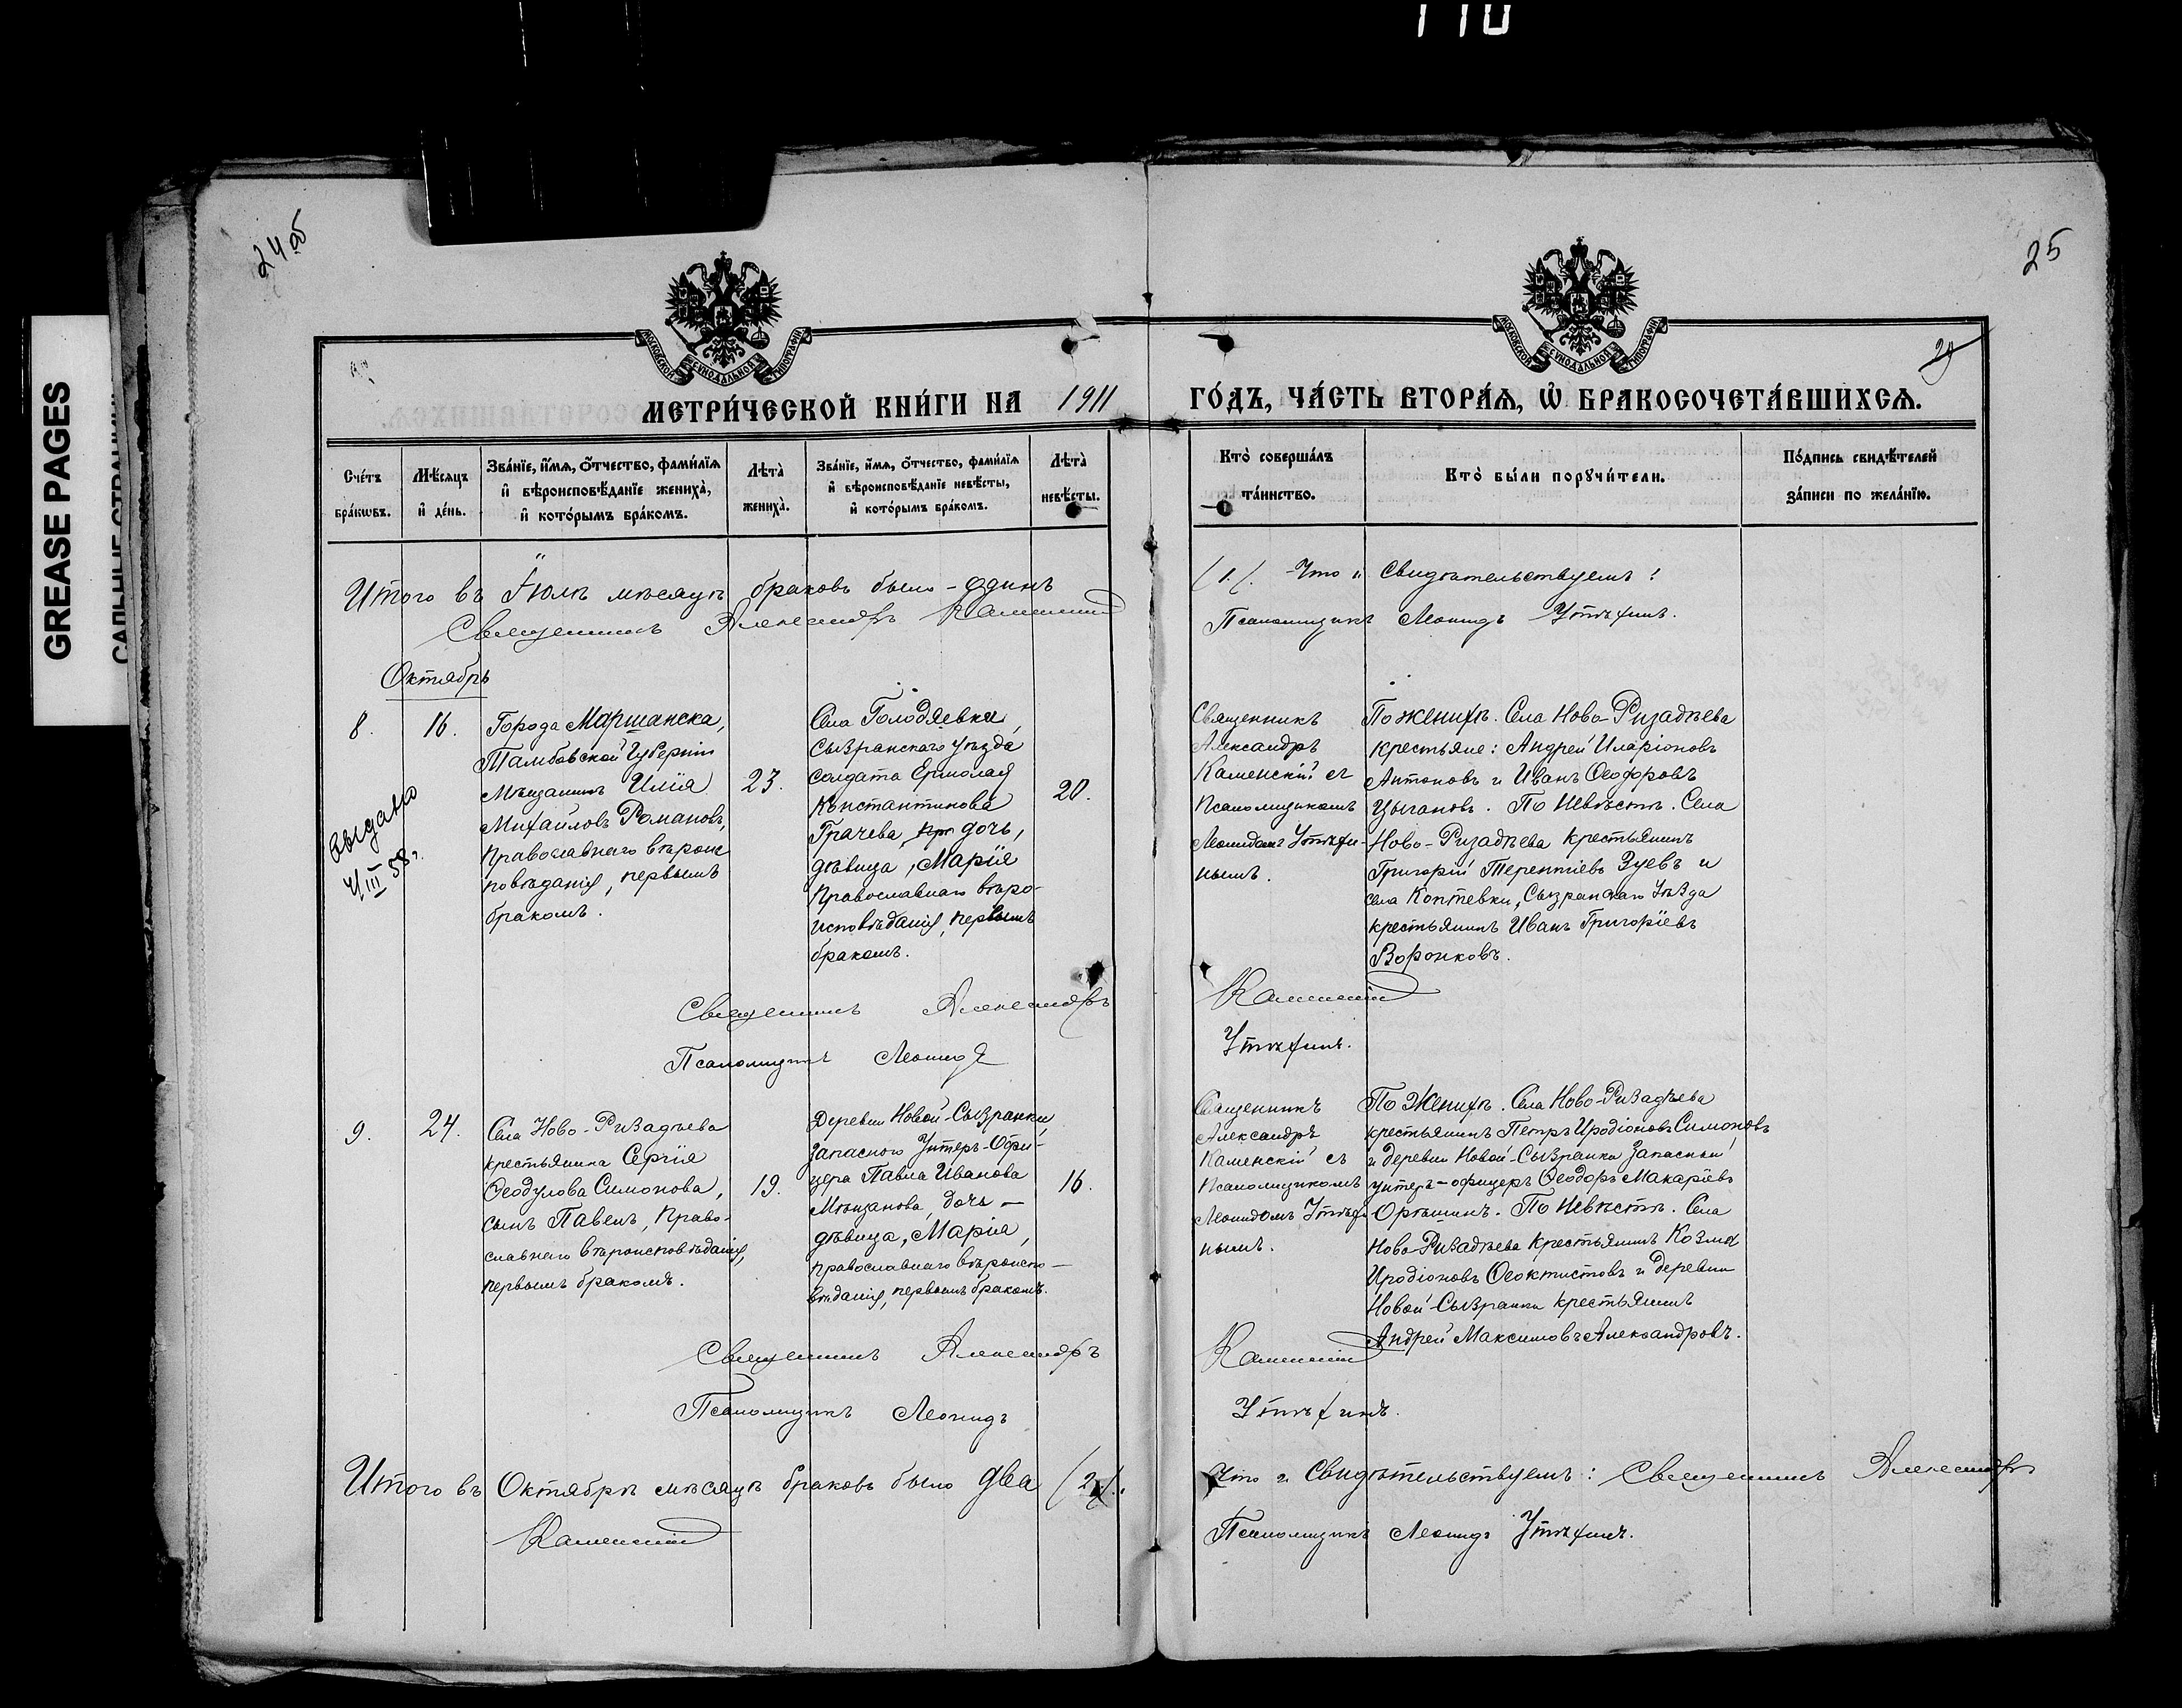 110
GREASE PAGES
24 об
25
29
МОСКОВСКОЙ СѴНОДАЛЬНОЙ ТИПОГРАФІИ
МОСКОВСКОЙ СѴНОДАЛЬНОЙ ТИПОГРАФІИ
МЕТРИ́ЧЕСКОЙ КНИ́ГИ НА 1911 ГО́ДЪ, ЧА́СТЬ ВТОРА́Ѧ, Ѡ҆ БРАКОСОЧЕТА́ВШИХСѦ.
Сче́тъ
бра́кѡвъ.
Мѣ́сяцъ
и҆ де́нь.
Зва́нїе, и҆́мѧ, ѻ҆́тчество, фами́лїѧ
и҆ вѣроисповѣ́данїе жениха̀,
и҆ кото́рымъ бра́комъ.
Лѣта̀
жениха̀.
Зва́нїе, и҆́мѧ, ѻ҆́тчество, фами́лїѧ
и҆ вѣроисповѣ́данїе невѣ́сты,
и҆ кото́рымъ бра́комъ.
Лѣта̀
невѣ́сты.
Кто̀ соверша́лъ
та́инство.
Кто̀ бы́ли порꙋчи́тели.
По́дпись свидѣ́телей
за́писи по жела́нїю.
Итого въ Іюлѣ мѣсяцѣ браковъ было - одинъ (1). Что и свидѣтельствуемъ:
Священникъ Александръ Каменскій
Псаломщикъ Леонидъ Утѣхинъ.
Октябрь
8.
16.
Города Маршанска,
Тамбовской Губерніи
Мѣщанинъ Илія
Михайловъ Романовъ,
Православнаго вѣроис
повѣданія, первымъ
бракомъ.
23.
Села Голодяевки,
Сызранскаго уѣзда
солдата Ермолая
Константинова
Грачева, дочь,
дѣвица, Марія
Православнаго вѣро-
исповѣданія, первымъ
бракомъ.
20.
Священникъ
Александръ
Каменскій съ
Псаломщикомъ
Леонидомъ Утѣхи-
нымъ.
По женихѣ. Села Ново-Ризадѣева
крестьяне: Андрей Иларіоновъ
Антоновъ и Иванъ Ѳеодоровъ
Цыгановъ. По невѣстѣ. Села
Ново-Ризадѣева крестьянинъ
Григорій Терентіевъ Зуевъ и
села Коптевки, Сызранскаго Уѣзда
крестьянинъ Иванъ Григоріевъ
Воронковъ.
выдано
4/III 58 г.
Священникъ Александръ Каменскій
Псаломщикъ Леонидъ Утѣхинъ.
9.
24.
Села Ново-Ризадѣева
крестьянина Сергія
Ѳеодулова Симонова,
сынъ Павелъ, Право-
славнаго вѣроисповѣданія,
первымъ бракомъ.
19.
Деревни Новой-Сызранки,
запасного Унтеръ-Офи-
цера Павла Иванова
Мѣщанова, дочь -
дѣвица, Марія,
православнаго вѣроиспо-
вѣданія, первымъ бракомъ.
16.
Священникъ
Александръ
Каменскій съ
Псаломщикомъ
Леонидомъ Утѣхи-
нымъ.
По Женихѣ. Села Ново-Ризадѣева
крестьянинъ Петръ Иродіоновъ Симоновъ
и деревни Новой-Сызранки Запасный
унтеръ-офицеръ Ѳеодоръ Макаріевъ
Орѣшинъ. По Невѣстѣ. Села
Ново-Ризадѣева крестьянинъ Козма
Иродіоновъ Ѳеоктистовъ и деревни
Новой-Сызранки крестьянинъ
Андрей Максимовъ Александровъ.
Священникъ Александръ Каменскій
Псаломщикъ Леонидъ Утѣхинъ.
Итого въ Октябрѣ мѣсяцѣ браковъ было два (2). Что и свидѣтельствуемъ: Священникъ Александръ
Каменскій
Псаломщикъ Леонидъ Утѣхинъ.